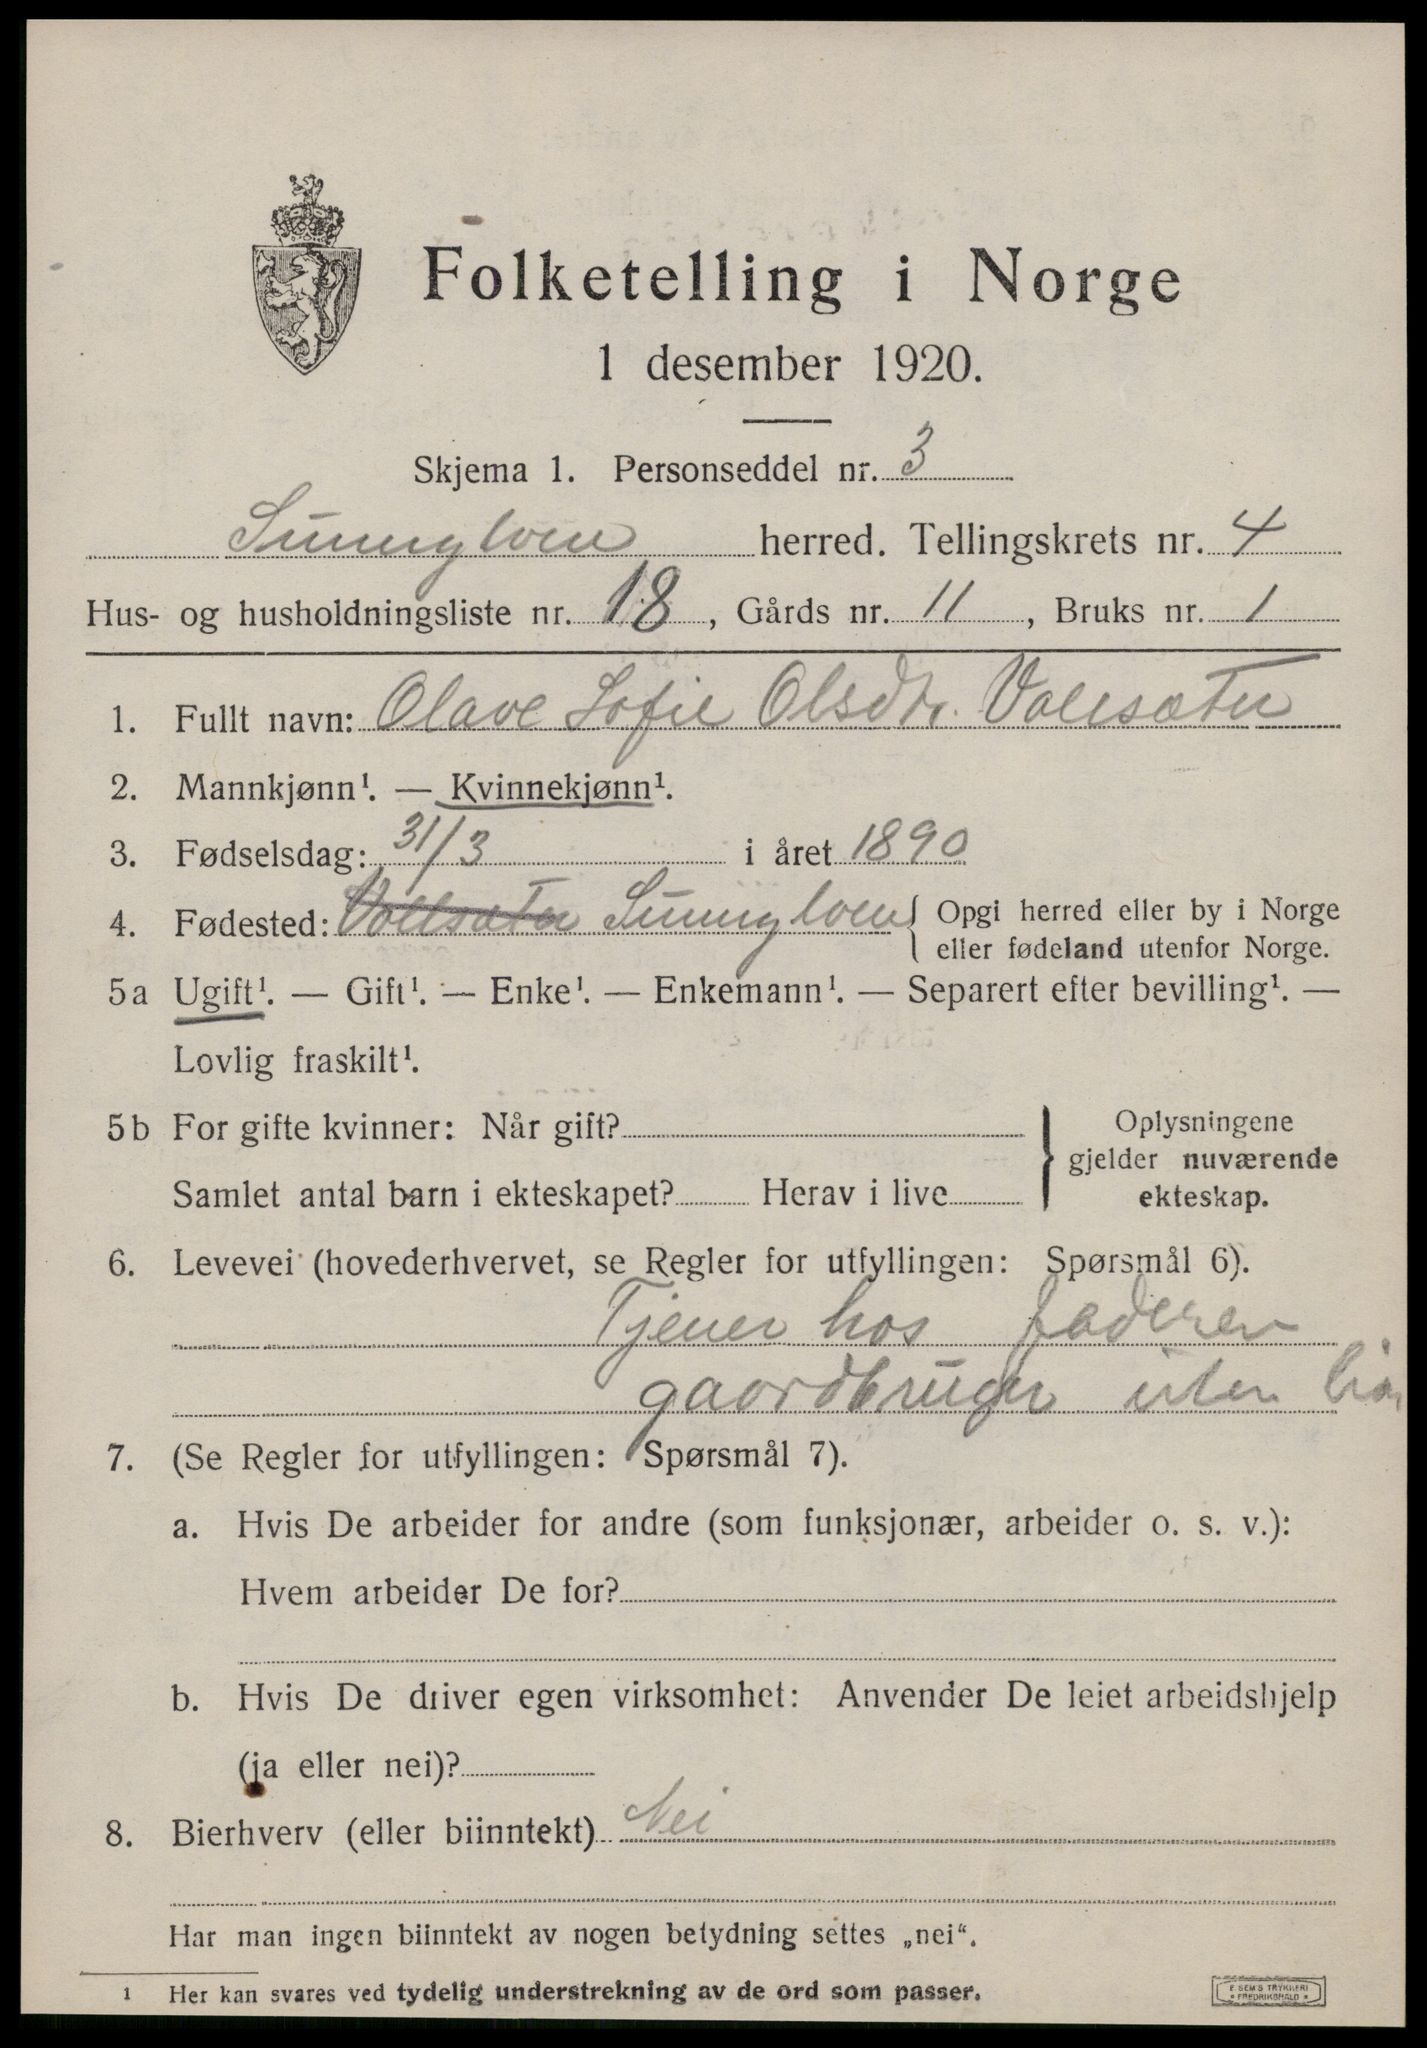 Folketelling i Norge
1 desember 1920.
Skjema 1. Personseddel nr. 3
Sunnylven herred. Tellingskrets nr. 4
Hus- og husholdningsliste nr. 18, Gårds nr. 11, Bruks nr. 1
1. Fullt navn: Olave Sofie Olsdtr. Vollsæter
2. Mannkjønn¹. — Kvinnekjønn¹.
3. Fødselsdag: 31/3 i året 1890
4. Fødested: Vollsæter Sunnylven { Opgi herred eller by i Norge
eller fødeland utenfor Norge.
5a Ugift¹. — Gift¹. — Enke¹. — Enkemann¹. — Separert efter bevilling¹. —
Lovlig fraskilt¹.
5b For gifte kvinner: Når gift?
Samlet antal barn i ekteskapet? Herav i live
} Oplysningene
gjelder nuværende
ekteskap.
6. Levevei (hovederhvervet, se Regler for utfyllingen: Spørsmål 6).
Tjener hos faderen
gaardbruger uten
7. (Se Regler for utfyllingen: Spørsmål 7).
a. Hvis De arbeider for andre (som funksjonær, arbeider o. s. v.):
Hvem arbeider De for?
b. Hvis De driver egen virksomhet: Anvender De leiet arbeidshjelp
(ja eller nei)?
8. Bierhverv (eller biinntekt) Nei
Har man ingen biinntekt av nogen betydning settes „nei“.
1 Her kan svares ved tydelig understrekning av de ord som passer.
E SEM'S TRYKKERI
* FREDRIKSHALD *